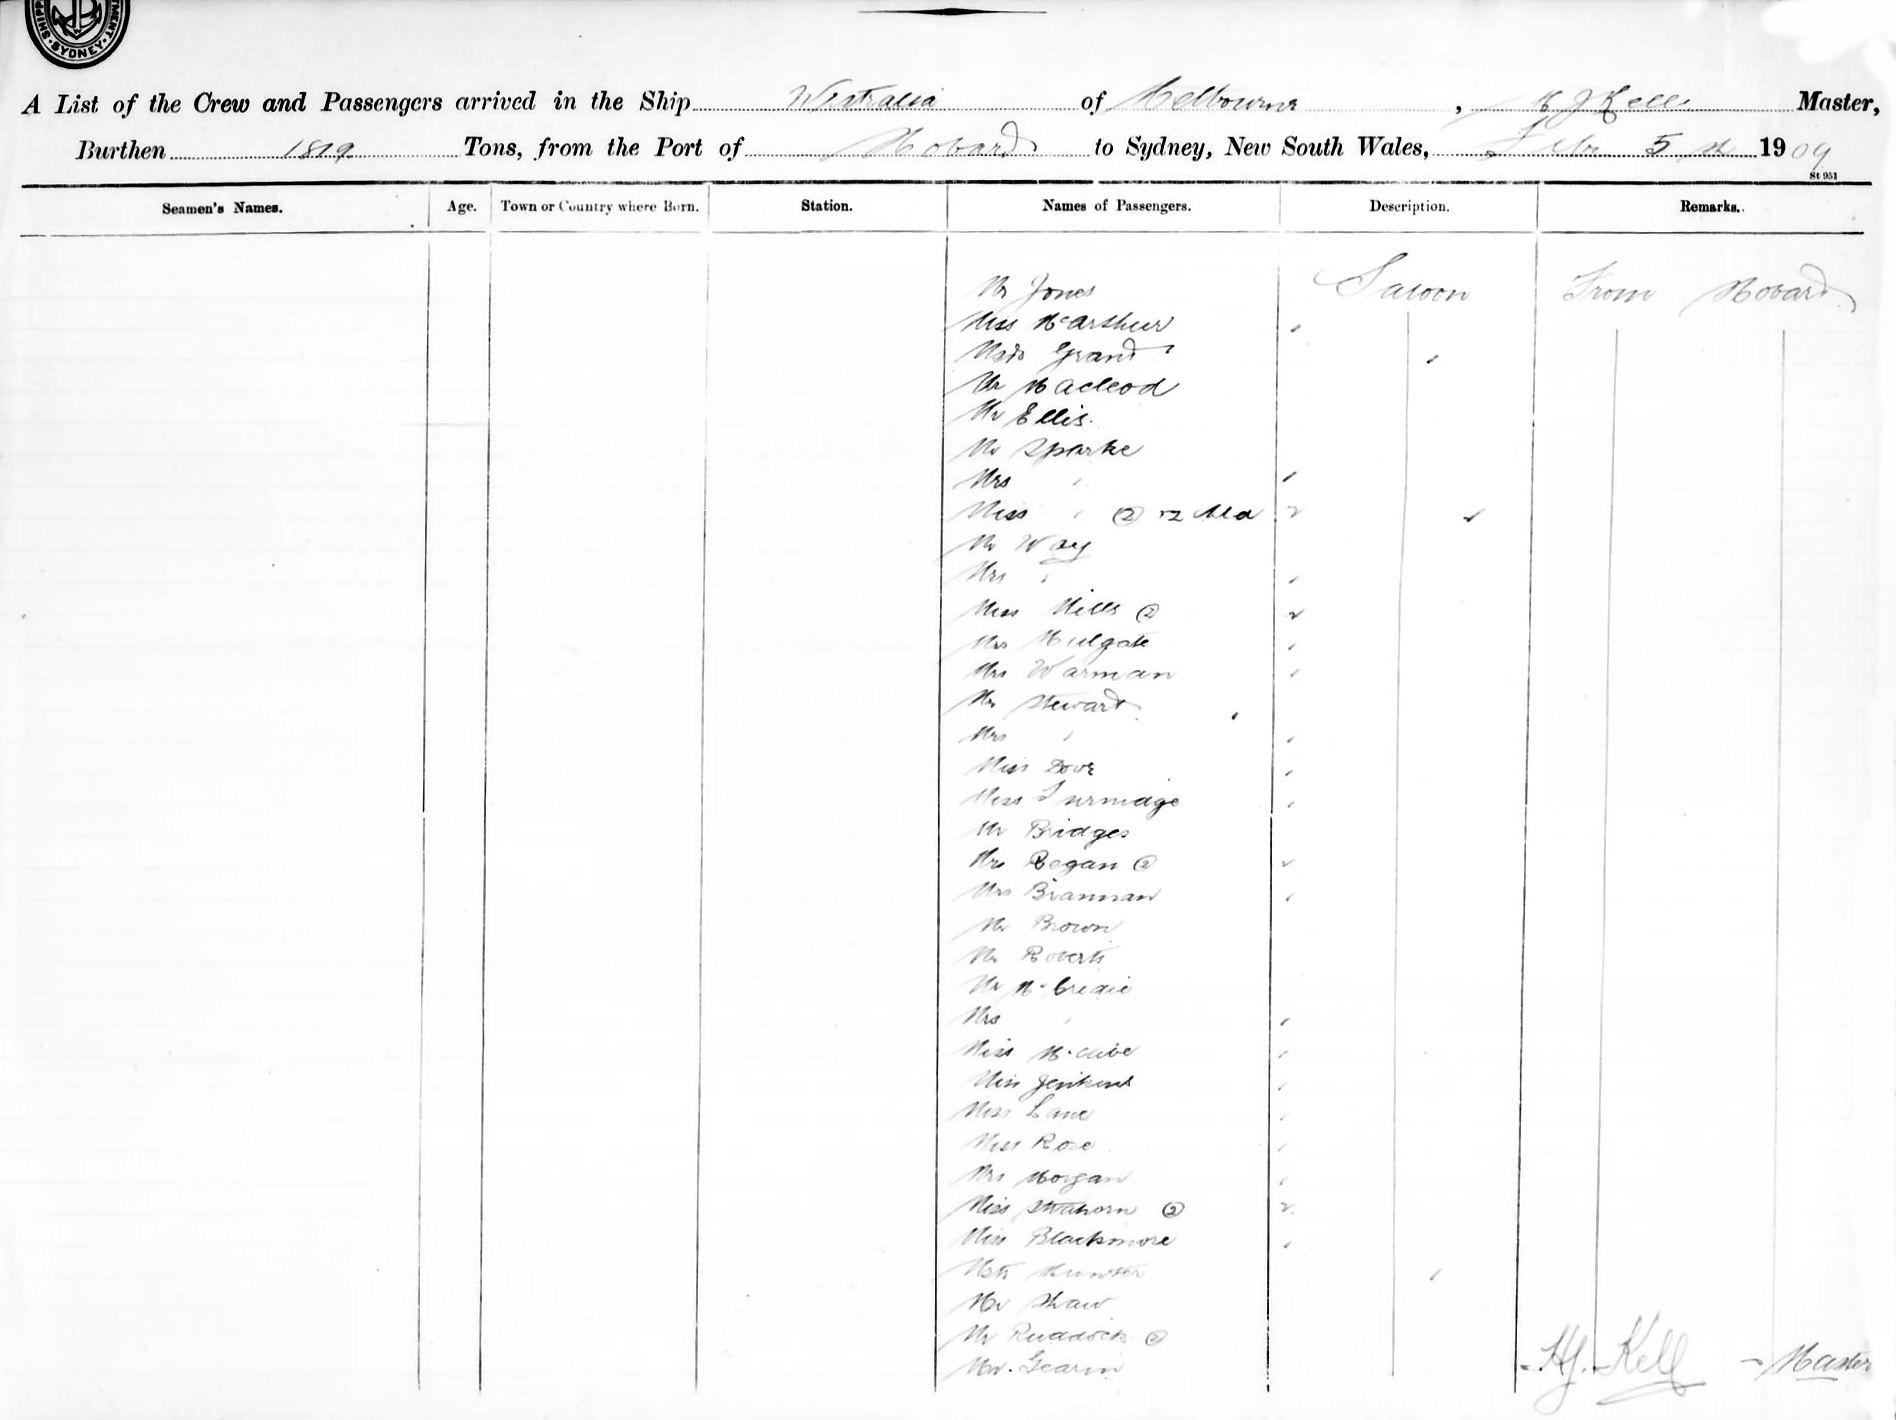 SYDNEY
A List of the Crew and Passengers arrived in the Ship Westralia of Melbourne, H J Kell Master,
Burthen 1819 Tons, from the Port of Hobart to Sydney, New South Wales, Feby 5th 1909
St 951
Seamen's Names. Age. Town or Country where Born. Station. Names of Passengers. Description. Remarks.
Mr Jones Saloon From Hobart
Miss McArthur
Mstr Grant
Mr Macleod
Mr Ellis.
Mr Sparke
Mrs "
Miss " (2) + 2 Chd
Mr Way
Mrs "
Miss Mills (2)
Mrs Hulgate
Mrs Warman
Mr Stewart
Mrs "
Miss Dove
Miss Turmidge
Mr Bridges
Mrs Regan (2)
Mrs Brannan
Mr Brown
Mr Roberts
Mr McCredie
Mrs "
Miss
Miss Jenkins
Miss Lane
Miss Rose
Mrs Morgan
Miss Strahorn (2)
Miss Blackmore
Mstr Hunter
Mr Shaw
Mr Ruddick (2)
Mr. Gearin
H.J. Kell - Master